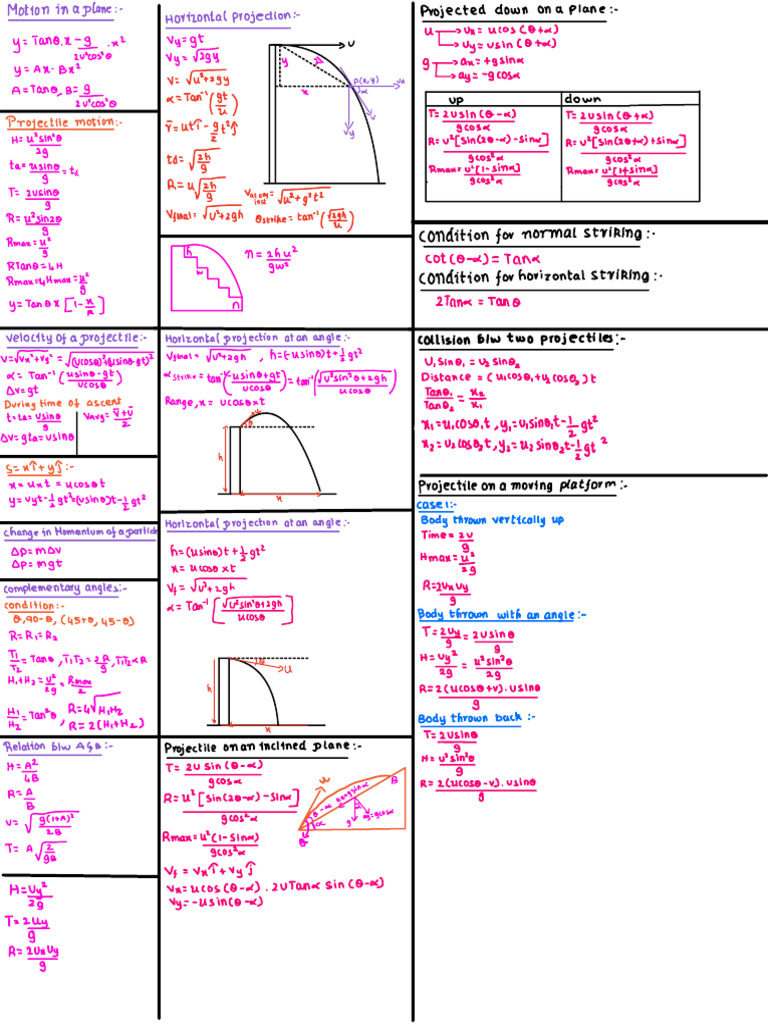 Motion in a plane:-
y=Tanθ.x-g/2u²cos²θ.x²
y=Ax-Bx²
A=Tanθ, B=g/2u²cos²θ
Projectile motion:-
H=u²sin²θ/2g
ta=usinθ/g=td
T=2usinθ/g
R=u²sin2θ/g
Rmax=u²/g
RTanθ=4H
Rmax=4Hmax=u²/g
y=Tanθx[1-x/R]
velocity of a projectile:-
V=√Vx²+Vy²=√(ucosθ)²(usinθ-gt)²
α=Tan⁻¹(usinθ-gt/ucosθ)
Δv=gt
During time of ascent
t=ta=usinθ/g
Δv=gta=usinθ
Vavg=v̅+u̅/2
S=xî+yĵ:-
x=uxt=ucosθt
y=vyt-1/2gt²=(usinθ)t-1/2gt²
change in Momentum of a particle
ΔP=mΔv
ΔP=mgt
complementary angles:-
condition:-
θ,90-θ, (45+θ, 45-θ)
R=R₁=R₂
T₁/T₂=Tanθ, T₁T₂=2R/g, T₁T₂∝R
H₁+H₂=u²/2g=Rmax/2
H₁/H₂=Tan²θ, R=4√H₁H₂
R=2(H₁+H₂)
Relation b/w A&B:-
H=A²/4B
R=A/B
u=√g(1+A²)/2B
T=A√2/gB
H=Uy²/2g
T=2Uy/g
R=2UxUy/g
Horizontal projection:-
Vy=gt
Vy=√2gy
V=√u²+2gy
α=Tan⁻¹(gt/u)
r̅=utî-g/2t²ĵ
td=√2h/g
R=u√2h/g
Vfinal=√u²+2gh
Vat any inst=√u²+g²t²
θstrike=tan⁻¹(√2gh/u)
u
y
x
P(x,y)
α
Vx
Vy
h
w
n
n=2hu²/gw²
Horizontal projection at an angle:-
Vfinal=√u²+2gh, h=(-usinθ)t+1/2gt²
αstrike=tan⁻¹(usinθ+gt/ucosθ)=tan⁻¹(√u²sin²θ+2gh/ucosθ)
Range, x=ucosθxt
θ
h
x
Horizontal projection at an angle:-
h=(usinθ)t+1/2gt²
x=ucosθxt
Vf=√u²+2gh
α=Tan⁻¹[√u²sin²θ+2gh/ucosθ]
θ
u
h
x
Projectile on an inclined plane:-
T=2usin(θ-α)/gcosα
R=u²[sin(2θ-α)-sinα]/gcos²α
Rmax=u²(1-sinα)/gcos²α
Vf=Vxî+Vyĵ
Vx=ucos(θ-α).2uTanα sin(θ-α)
Vy=-usin(θ-α)
u
B
θ-α
α
g
Projected down on a plane:-
u→ux=ucos(θ+α)
→uy=usin(θ+α)
g→ax=+gsinα
→ay=-gcosα
up
down
T=2usin(θ-α)/gcosα
T=2usin(θ+α)/gcosα
R=u²[sin(2θ-α)-sinα]/gcos²α
R=u²[sin(2θ+α)+sinα]/gcos²α
Rmax=u²[1-sinα]/gcos²α
Rmax=u²[1+sinα]/gcos²α
Condition for normal striking:-
cot(θ-α)=Tanα
Condition for horizontal striking:-
2Tanα=Tanθ
collision b/w two projectiles:-
U₁sinθ₁=u₂sinθ₂
Distance=(u₁cosθ₁+u₂cosθ₂)t
Tanθ₁/Tanθ₂=x₂/x₁
x₁=u₁cosθ₁t, y₁=u₁sinθ₁t-1/2gt²
x₂=u₂cosθ₂t, y₂=u₂sinθ₂t-1/2gt²
Projectile on a moving platform:-
case1:
Body thrown vertically up
Time=2u/g
Hmax=u²/2g
R=2UxUy/g
Body thrown with an angle:-
T=2Uy/g=2usinθ/g
H=Uy²/2g=u²sin²θ/2g
R=2(ucosθ+v).usinθ/g
Body thrown back:-
T=2usinθ/g
H=u²sin²θ/g
R=2(ucosθ-v).usinθ/g